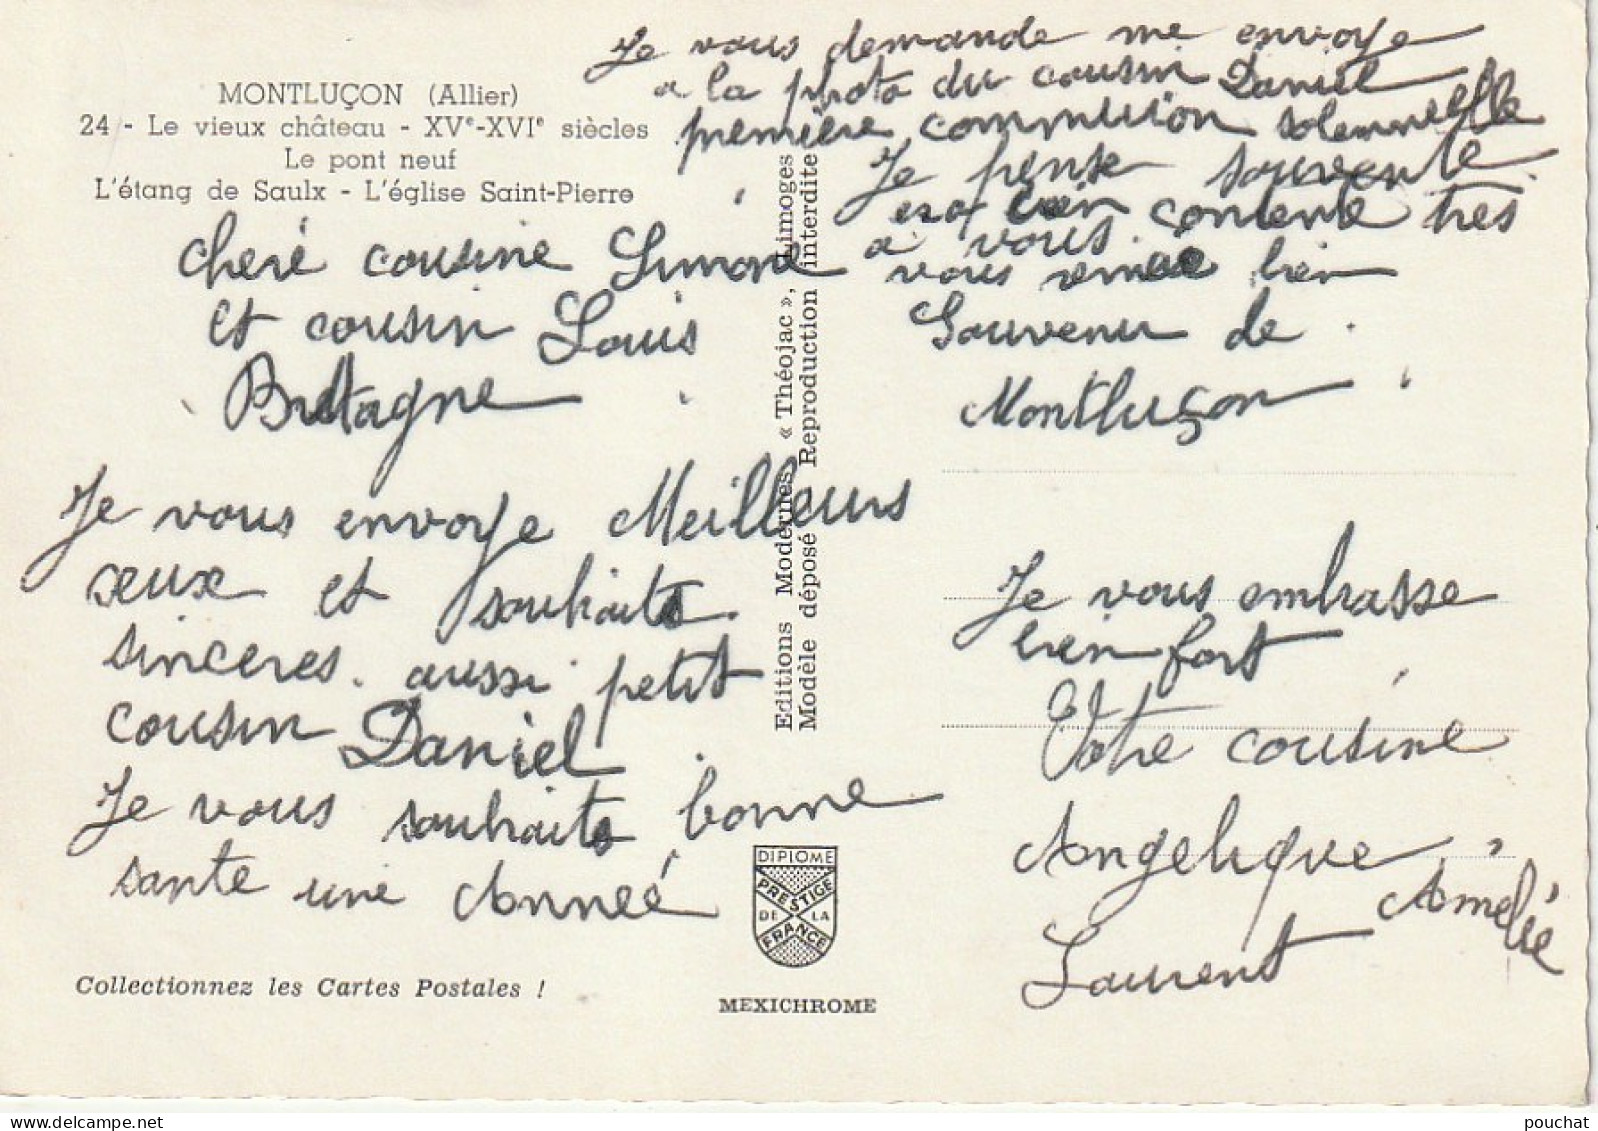 MONTLUÇON (Allier)
24 - Le vieux château - XVe-XVIe siècles
Le pont neuf
L'étang de Saulx - L'église Saint-Pierre
Cheré cousine Simone
et cousin Louis
Bretagne
Je vous envoye Meilleurs
veux et souhaits
sinceres. aussi petit
cousin Daniel
Je vous souhaits bonne
sante une Anneé
Collectionnez les Cartes Postales !
Editions Modernes « Théojac », Limoges
Modèle déposé Reproduction interdite
DIPLOME
PRESTIGE
DE LA
FRANCE
MEXICHROME
Je vous demande me envoye
a la photo du cousin Daniel
première communion solennelle
Je pense souvente
a vous contente très
vous bien
Souvenir de
Montluçon
Je vous embrasse
bien fort
Votre cousine
Angelique
Amelie
Laurent
pouchat